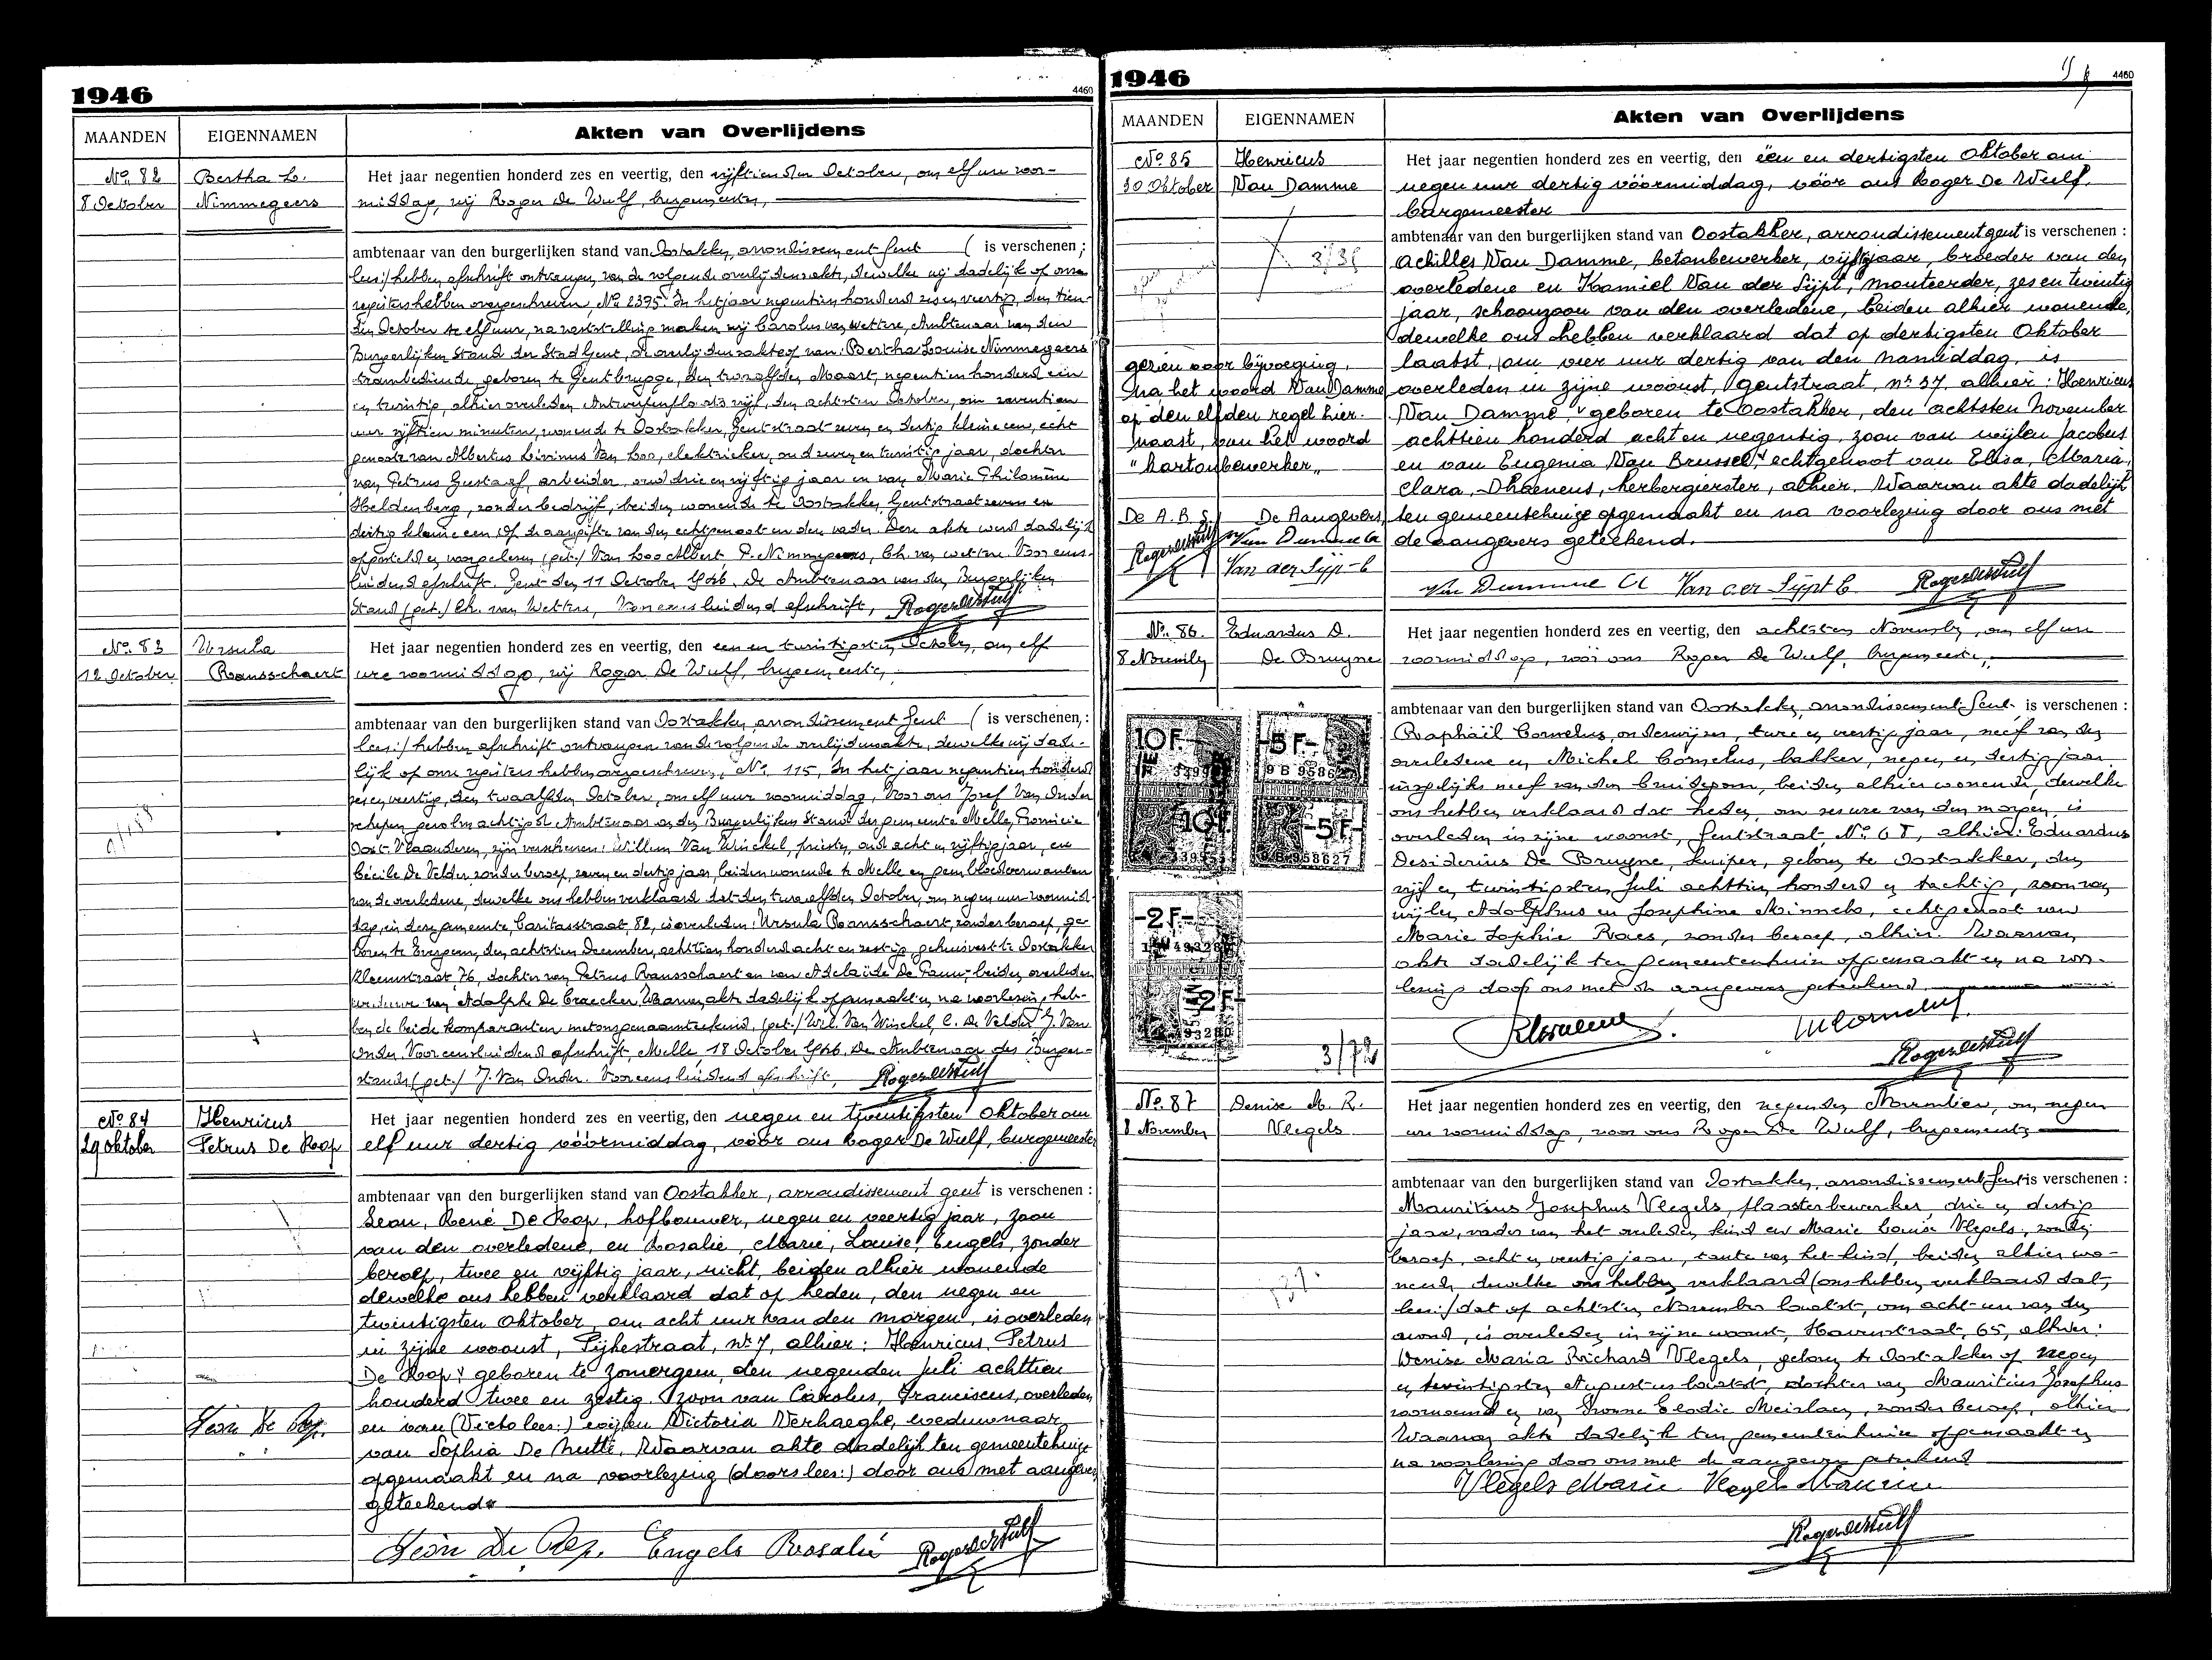 1946
4460
MAANDEN EIGENNAMEN Akten van Overlijdens
No. 82 Bertha L. Het jaar negentien honderd zes en veertig, den vijftienden October, om elf ure voor-
8 October Nimmegeers middag, wij Roger De Wulf, burgemeester,
ambtenaar van den burgerlijken stand van Oostakker, arrondissement Gent ( is verschenen ;
lees:/ hebben afschrift ontvangen van de volgende overlijdensakte, dewelke wij dadelijk op onze
registers hebben overgeschreven, No. 2395. In het jaar negentien honderd zes en veertig, den tien-
den October te elf uur, na vaststelling maken wij Carolus van Wettere, Ambtenaar van den
Burgerlijken Stand der Stad Gent, de overlijdensakte op van: Bertha Louise Nimmegeers
trambediende, geboren te Gentbrugge, den twaalfden Maart, negentien honderd een
en twintig, alhier overleden Antwerpenplaats vijf, den achtsten October, om zeventien
uur vijftien minuten, wonende te Oostakker, Gentstraat zeven en dertig kleine een, echt
genoote van Albertus Livinus Van Loo, elektrieker, oud zeven en twintig jaar, dochter
van Petrus Gustaaf, arbeider, oud drie en vijftig jaar en van Marie Philomène
Heldenberg, zonder bedrijf, beiden wonende te Oostakker, Gentstraat zeven en
dertig kleine een. Op de aangifte van den echtgenoot en den vader. Deze akte werd dadelijk
opgesteld en voorgelezen (get.) Van Loo Albert, P. Nimmegeers, Ch. van Wettere. Voor eens-
luidend afschrift. Gent den 11 October 1946. De Ambtenaar van den Burgerlijken
Stand (get.) Ch. van Wettere, Voor eensluidend afschrift, Roger De Wulf
No. 83 Ursula Het jaar negentien honderd zes en veertig, den een en twintigsten October, om elf
12 October Ransschaert ure voormiddag, wij Roger De Wulf, burgemeester,
ambtenaar van den burgerlijken stand van Oostakker, arrondissement Gent ( is verschenen, :
lees:/ hebben afschrift ontvangen van de volgende overlijdensakte, dewelke wij dade-
lijk op onze registers hebben overgeschreven, No. 115, In het jaar negentien honderd
zes en veertig, den twaalfden October, om elf uur voormiddag, Voor ons Jozef Van Onder
schepen gevolmachtigd Ambtenaar van den Burgerlijken Stand der gemeente Melle, Provincie
Oost-Vlaanderen, zijn verschenen: Willem Van Winckel, priester, oud acht en vijftig jaar, en
Cécile De Velder, zonder beroep, zeven en dertig jaar, beiden wonende te Melle en geen bloedverwanten
van de overledene, dewelke ons hebben verklaard dat den twaalfden October, om negen uur voormid-
dag, in deze gemeente, Caritasstraat, 82, is overleden: Ursula Ransschaert, zonder beroep, ge-
boren te Evergem, den achtsten December, achttien honderd acht en zestig, gehuisvest te Oostakker
Kleemstraat, 76, dochter van Petrus Ransschaert en van Adelaïde De Pauw, beiden overleden,
weduwe van Adolphe De Craecker. Waarvan akte dadelijk opgemaakt en na voorlezing, heb-
ben de beide komparanten met ons genaamteekend. (get.) Wil. Van Winckel, C. De Velder, J. Van
Onder. Voor eensluidend afschrift. Melle 18 October 1946. De Ambtenaar des Burger-
stands (get.) J. Van Onder. Voor eensluidend afschrift, Roger De Wulf
No. 84 Henricus Het jaar negentien honderd zes en veertig, den negen en twentigsten Oktober om
29 oktober Petrus De Roop elf uur dertig vóórmiddag, vóór ons Roger De Wulf, burgemeester
ambtenaar van den burgerlijken stand van Oostakker, arrondissement gent is verschenen :
Leon, René De Roop, hofbouwer, negen en veertig jaar, zoon
van den overledene, en Rosalie, Marie, Louise, Engels, zonder
beroep, twee en vijftig jaar, nicht, beiden alhier wonende
dewelke ons hebben verklaard dat op heden, den negen en
twintigsten Oktober, om acht uur van den morgen, is overleden
in zijne woonst, Pijkestraat, nr 7, alhier: Henricus, Petrus
De Roop, geboren te Zomergem, den negenden Juli achttien
honderd twee en zestig. zoon van Carolus, Franciscus, overleden
en van (Victo lees:) wijlen Victoria Verhaeghe, weduwnaar
van Sophia De Mutte. Waarvan akte dadelijk ten gemeentehuize
opgemaakt en na voorlezing (doors lees:) door ons met aangevers
geteekend.
Leon De Rop.
Leon De Rop. Engels Rosalie Roger De Wulf
1946
4460
MAANDEN EIGENNAMEN Akten van Overlijdens
No. 85 Henricus Het jaar negentien honderd zes en veertig, den één en dertigsten Oktober om
30 Oktober Van Damme negen uur dertig vóórmiddag, vóór ons Roger De Wulf,
burgemeester
ambtenaar van den burgerlijken stand van Oostakker, arrondissement gent is verschenen :
Achilles Van Damme, betonbewerker, vijftig jaar, broeder van den
overledene en Kamiel Van der Sijpt, monteerder, zes en twentig
jaar, schoonzoon van den overledene, beiden alhier wonende,
dewelke ons hebben verklaard dat op dertigsten Oktober
laatst, om vier uur dertig van den namiddag, is
overleden in zijne woonst, Gentstraat, nr 37, alhier: Henricus
Van Damme, geboren te Oostakker, den achtsten November
achttien honderd acht en negentig, zoon van wijlen Jacobus
en van Eugenia Van Brussel, echtgenoot van Elisa, Maria,
Clara, Dhaenens, herbergierster, alhier. Waarvan akte dadelijk
ten gemeentehuize opgemaakt en na voorlezing door ons met
de aangevers geteekend.
gezien voor bijvoeging
na het woord Van Damme
op den elfden regel hier-
naast, van het woord
"kartonbewerker"
De A.B.S. De Aangevers,
Roger De Wulf Van Damme A
Van der Sijp-C
Van Damme A Van der Sijpt C Roger De Wulf
No. 86. Eduardus D. Het jaar negentien honderd zes en veertig, den achtsten November, om elf ure
8 November De Bruyne voormiddag, vóór ons Roger De Wulf, burgemeester,
ambtenaar van den burgerlijken stand van Oostakker, arrondissement Gent, is verschenen :
Raphaël Cornelus, onderwijzer, twee en veertig jaar, neef van den
overledene en Michel Cornelus, bakker, negen en dertig jaar
insgelijks neef van den bruidegom, beiden alhier wonende, dewelke
ons hebben verklaard dat heden, om zes ure van den morgen, is
overleden in zijne woonst, Gentstraat, No. 68, alhier: Eduardus
Desiderius De Bruyne, kuiper, geboren te Oostakker, den
vijf en twintigsten Juli achttien honderd en tachtig, zoon van
wijlen Adolphus en Josephine Minnebo, echtgenoot van
Marie Sophie Raes, zonder beroep, alhier. Waarvan
akte dadelijk ten gemeentenhuize opgemaakt en na voor-
lezing door ons met de aangevers geteekend.
10F.- 5F.-
10F.- 5F.-
958627
2F.-
2F.-
3/72
RCornelus. MCornelus.
Roger De Wulf
No. 87 Denise M. R. Het jaar negentien honderd zes en veertig, den negenden November, om negen
8 November Vlegels ure voormiddag, voor ons Roger De Wulf, burgemeester
ambtenaar van den burgerlijken stand van Oostakker, arrondissement Gent is verschenen :
Mauritius Josephus Vlegels, plaasterbewerker, drie en dertig
jaar, vader van het overleden kind en Marie Louise Vlegels, zonder
beroep, acht en veertig jaar, tante van het kind, beiden alhier wo-
nende, dewelke ons hebben verklaard (ons hebben verklaard dat,
lees:/ dat op achtsten November laatst, om acht ure van den
avond, is overleden in zijne woonst, Havenstraat, 65, alhier:
Denise Maria Richard Vlegels, geboren te Oostakker op negen
en twintigsten Augustus laatst, dochter van Mauritius Josephus
voornoemd en van Yvonne Elodie Meirlaen, zonder beroep, alhier.
Waarvan akte dadelijk ten gemeentenhuize opgemaakt en
na voorlezing door ons met de aangevers geteekend
Vlegels Marie Vlegels Maurice
Roger De Wulf